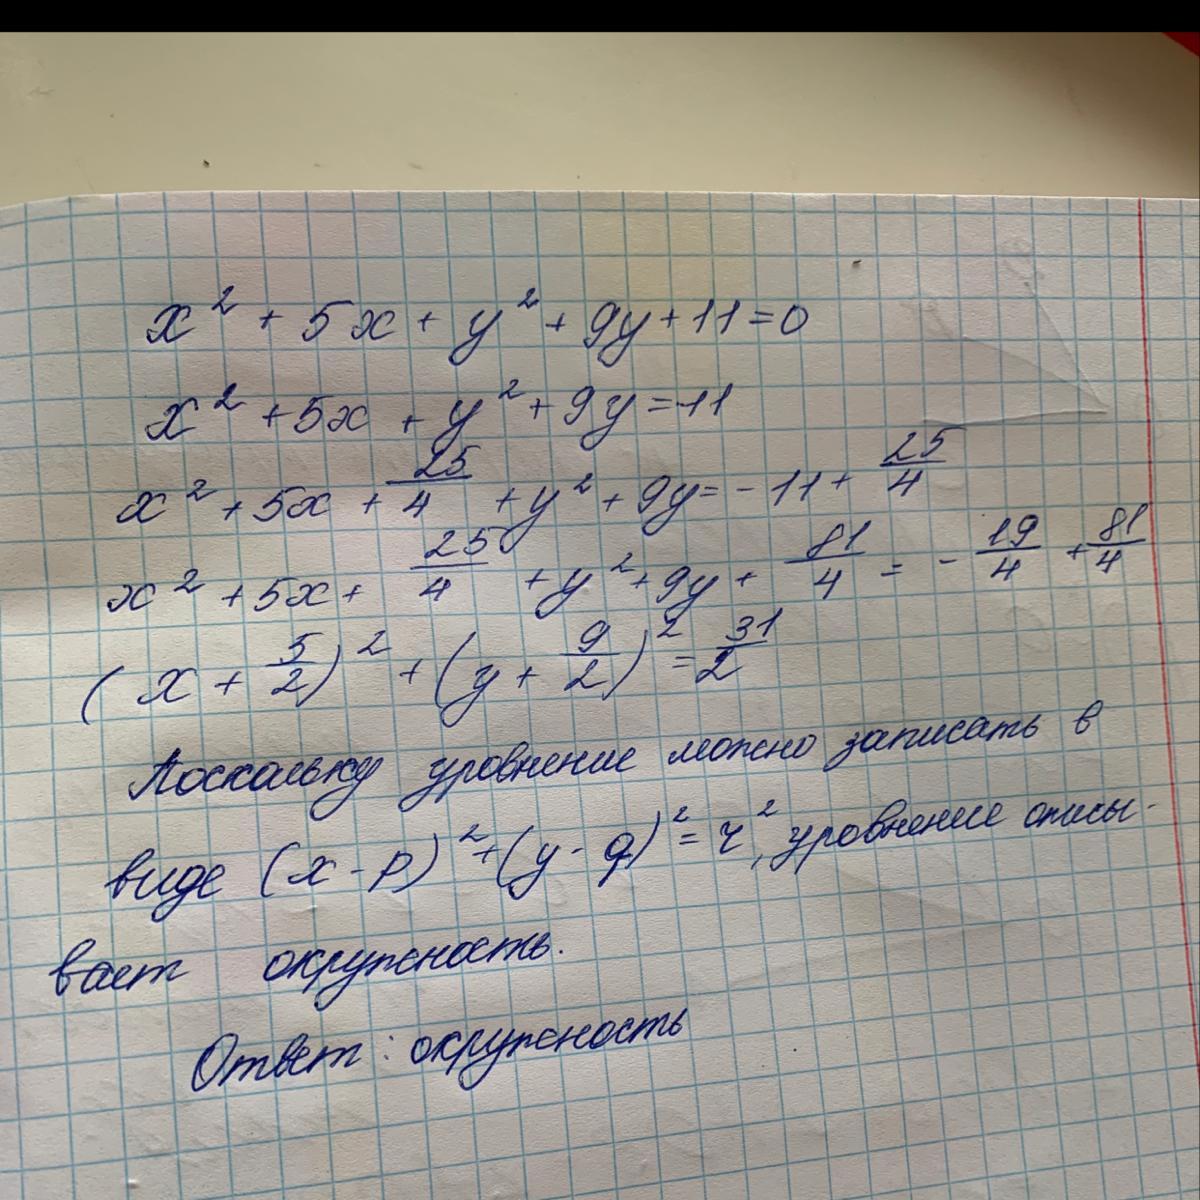 x² + 5x + y² + 9y + 11 = 0
x² + 5x + y² + 9y = -11
x² + 5x + 25/4 + y² + 9y = -11 + 25/4
x² + 5x + 25/4 + y² + 9y + 81/4 = - 19/4 + 81/4
(x + 5/2)² + (y + 9/2)² = 31/2
Поскольку уровнение можно записать в
виде (x - p)² + (y - q)² = r², уровнение описы-
вает окружность.
Ответ: окружность